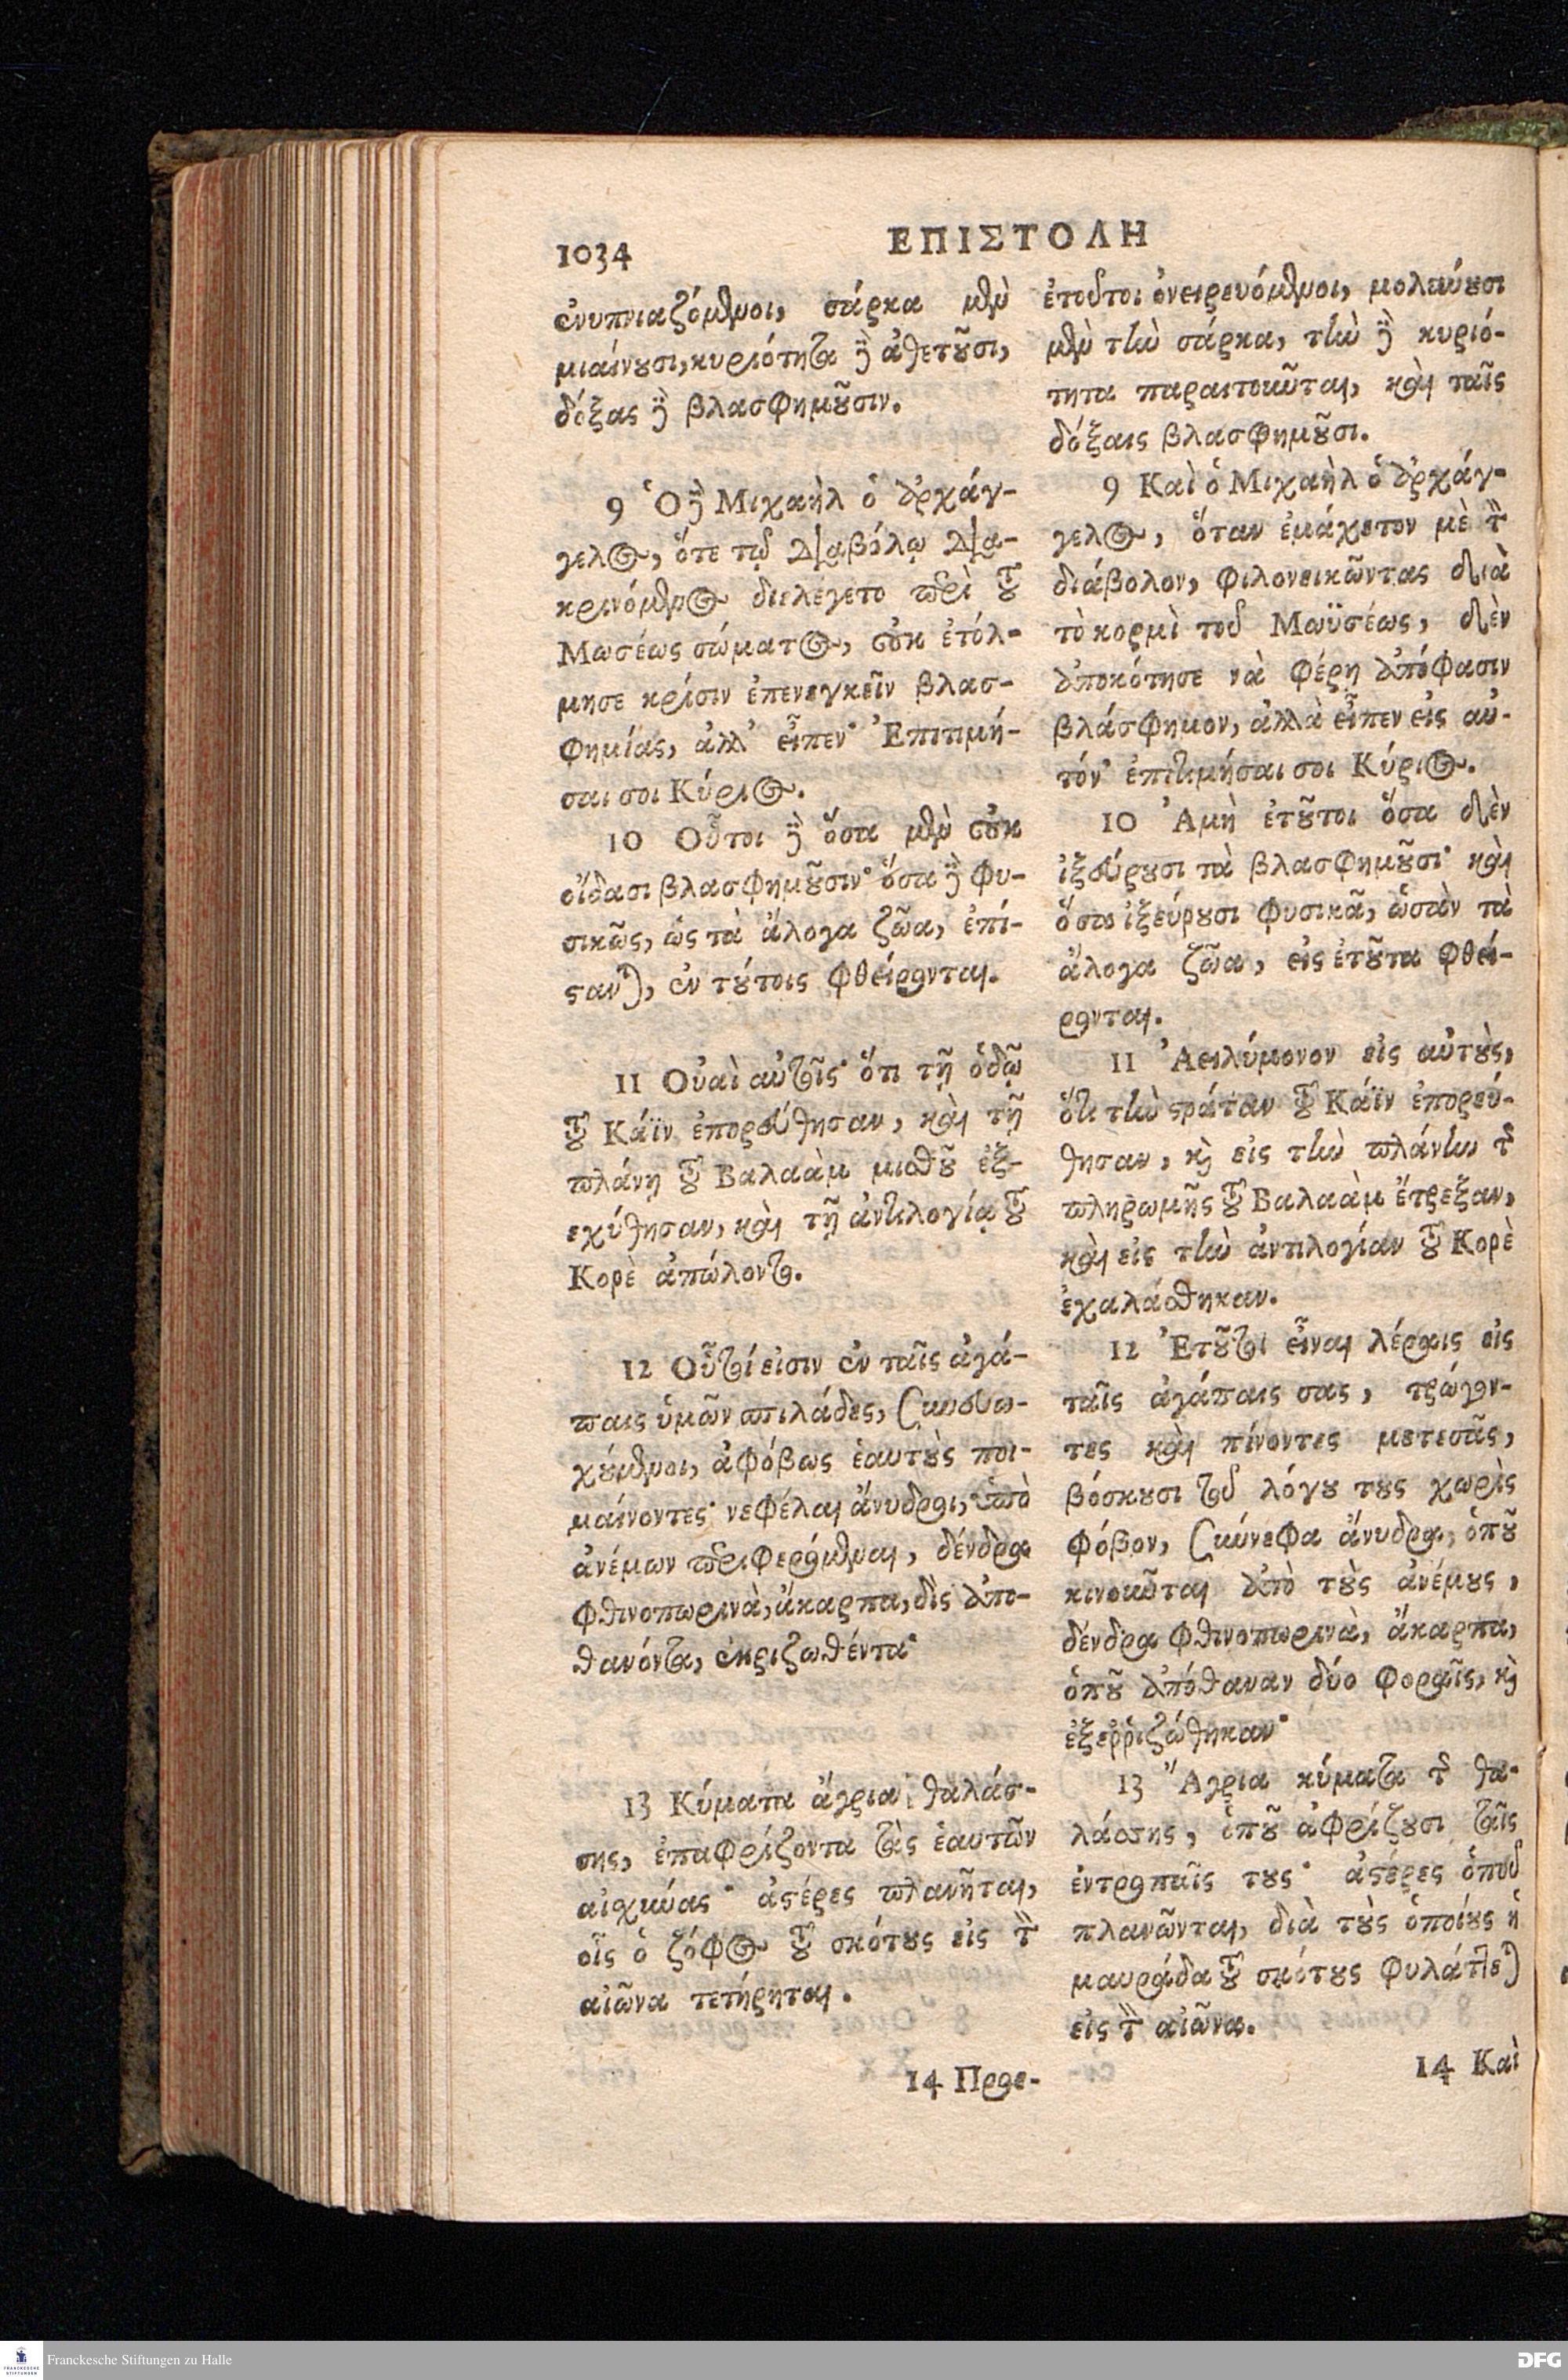 1034
ΕΠΙΣΤΟΛΗ
ἐνυπνιαζόμενοι, σάρκα μὲν
μιαίνουσι, κυριότητα δὲ ἀθετοῦσι,
δόξας δὲ βλασφημοῦσιν.
9 Ὁ δὲ Μιχαὴλ ὁ ἀρχάγ-
γελος, ὅτε τῷ διαβόλῳ δια-
κρινόμενος διελέγετο περὶ τοῦ
Μωσέως σώματος, οὐκ ἐτόλ-
μησε κρίσιν ἐπενεγκεῖν βλασ-
φημίας, ἀλλ' εἶπεν· Ἐπιτιμή-
σαι σοι Κύριος.
10 Οὗτοι δὲ ὅσα μὲν οὐκ
οἴδασι βλασφημοῦσιν· ὅσα δὲ φυ-
σικῶς, ὡς τὰ ἄλογα ζῶα, ἐπί-
στανται, ἐν τούτοις φθείρονται.
11 Οὐαὶ αὐτοῖς· ὅτι τῇ ὁδῷ
τοῦ Κάϊν ἐπορεύθησαν, καὶ τῇ
πλάνῃ τοῦ Βαλαὰμ μισθοῦ ἐξ-
εχύθησαν, καὶ τῇ ἀντιλογίᾳ τοῦ
Κορὲ ἀπώλοντο.
12 Οὗτοί εἰσιν ἐν ταῖς ἀγά-
παις ὑμῶν σπιλάδες, συνευω-
χούμενοι, ἀφόβως ἑαυτοὺς ποι-
μαίνοντες· νεφέλαι ἄνυδροι, ὑπὸ
ἀνέμων περιφερόμεναι, δένδρα
φθινοπωρινὰ, ἄκαρπα, δὶς ἀπο-
θανόντα, ἐκριζωθέντα·
13 Κύματα ἄγρια θαλάσ-
σης, ἐπαφρίζοντα τὰς ἑαυτῶν
αἰσχύνας· ἀστέρες πλανῆται,
οἷς ὁ ζόφος τοῦ σκότους εἰς τὸν
αἰῶνα τετήρηται.
14 Προε-
ἐτοῦτοι ὀνειρευόμενοι, μολύνουσι
μὲν τὴν σάρκα, τὴν δὲ κυριό-
τητα παραιτοιῶνται, καὶ ταῖς
δόξαις βλασφημοῦσι.
9 Καὶ ὁ Μιχαὴλ ὁ ἀρχάγ-
γελος, ὅταν ἐμάχετον μὲ τὸν
διάβολον, φιλονεικῶντας διὰ
τὸ κορμὶ τοῦ Μωϋσέως, δὲν
ἀποκότησε νὰ φέρῃ ἀπόφασιν
βλάσφημον, ἀλλὰ εἶπεν εἰς αὐ-
τόν· ἐπιτιμήσαι σοι Κύριος.
10 Ἀμὴ ἐτοῦτοι ὅσα δὲν
ἰξεύρουσι τὰ βλασφημοῦσι· καὶ
ὅσα ἰξεύρουσι φυσικᾶ, ὡσὰν τὰ
ἄλογα ζῶα, εἰς ἐτοῦτα φθεί-
ρονται.
11 Ἀειλύμονον εἰς αὐτοὺς,
ὅτι τὴν στράταν τοῦ Κάϊν ἐπορεύ-
θησαν, καὶ εἰς τὴν πλάνην τῆς
πληρωμῆς τοῦ Βαλαὰμ ἔτρεξαν,
καὶ εἰς τὴν ἀντιλογίαν τοῦ Κορὲ
ἐχαλάσθηκαν.
12 Ἐτοῦτοι εἶναι λέραις εἰς
ταῖς ἀγάπαις σας, τρώγον-
τες καὶ πίνοντες μετεσᾶς,
βόσκουσι τοῦ λόγου τους χωρὶς
φόβον, σύνεφα ἄνυδρα, ὁποῦ
κινοιῶνται ἀπὸ τοὺς ἀνέμους,
δένδρα φθινοπωρινὰ, ἄκαρπα,
ὁποῦ ἀπόθαναν δύο φοραῖς, καὶ
ἐξερριζώθηκαν·
13 Ἄγρια κύματα τῆς θα-
λάσσης, ὁποῦ ἀφρίζουσι ταῖς
ἐντροπαῖς τους· ἀστέρες ὁποῦ
πλανῶνται, διὰ τοὺς ὁποίους ἡ
μαυράδα τοῦ σκότους φυλάττεται
εἰς τὸν αἰῶνα.
14 Καὶ
Franckesche Stiftungen zu Halle
DFG